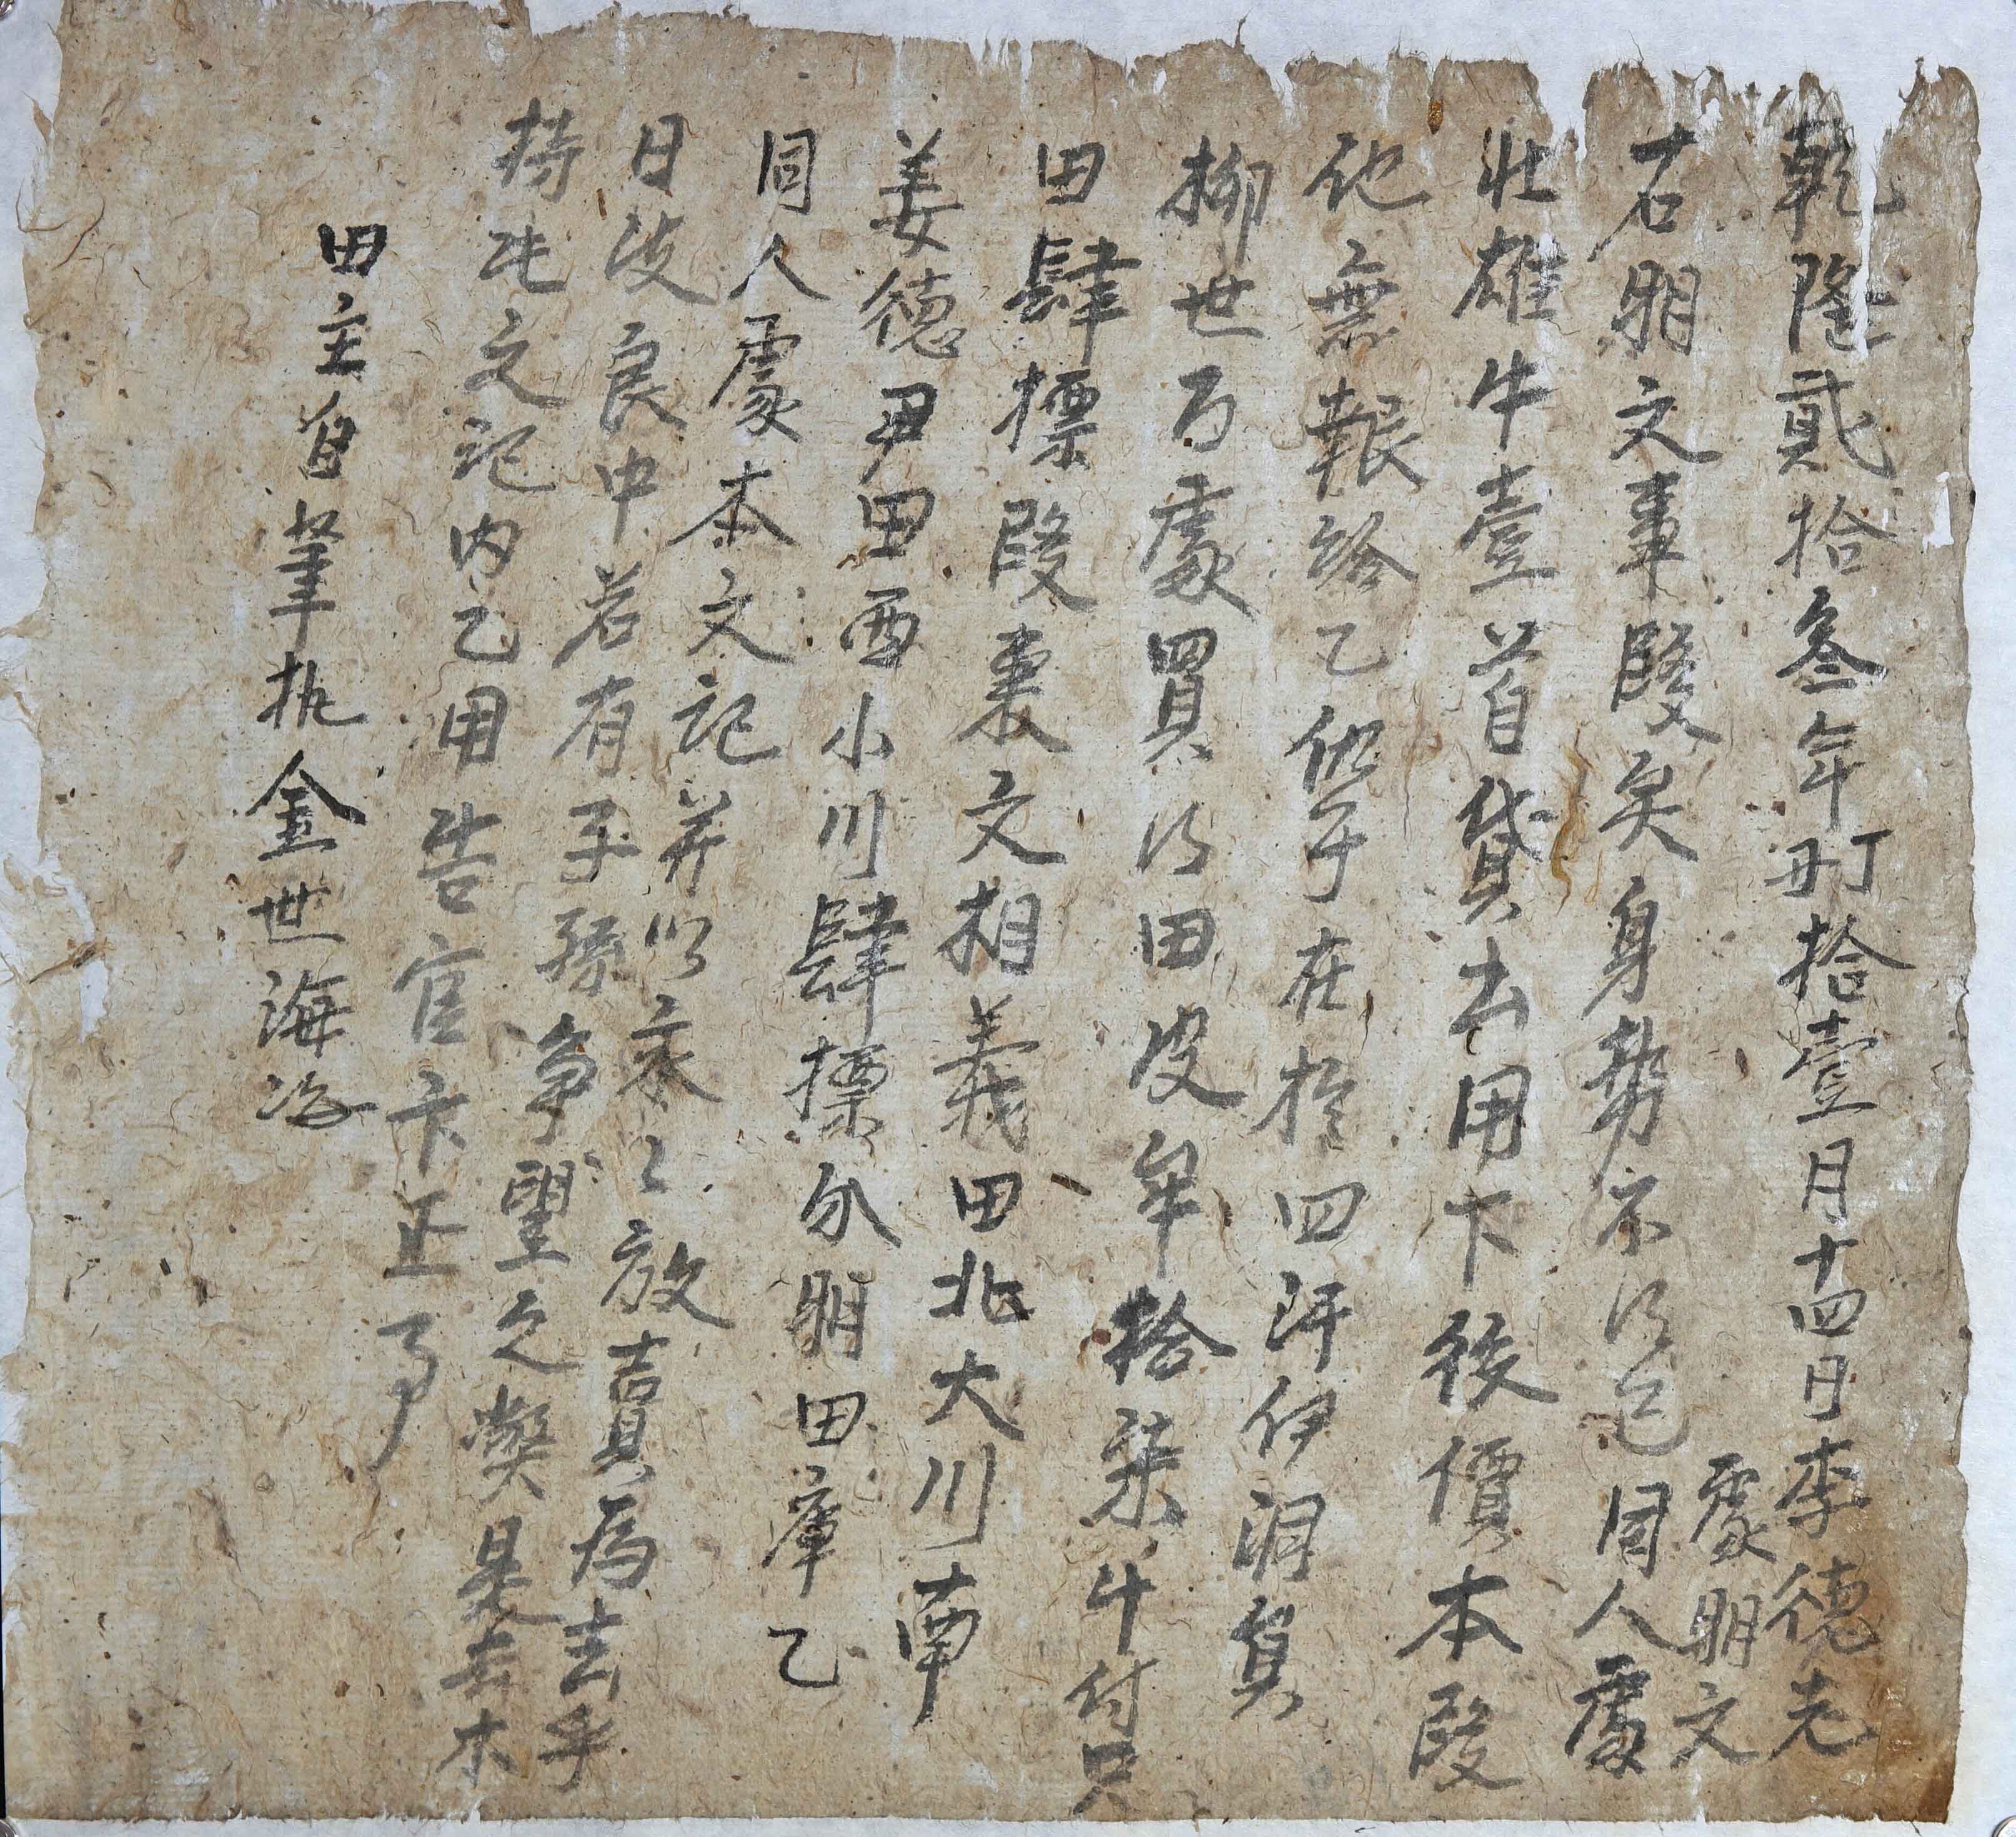 乾隆貳拾叁年丁丑拾壹月十四日李德老
處明文
右明文事段矣身勢不得已同人處
壯雄牛壹首貸去用下後價本段
他無報給乙仍于在於四汗伊洞員
柳世乃處買得田皮牟拾柒斗付只
田肆標段東文相義田北大川南
姜德尹田西小川肆標分明田庫乙
同人處本文記并以永永放賣爲去乎
日後良中若有子孫爭望之弊是去等
持此文記內乙用告官卞正事
田主自筆執金世海